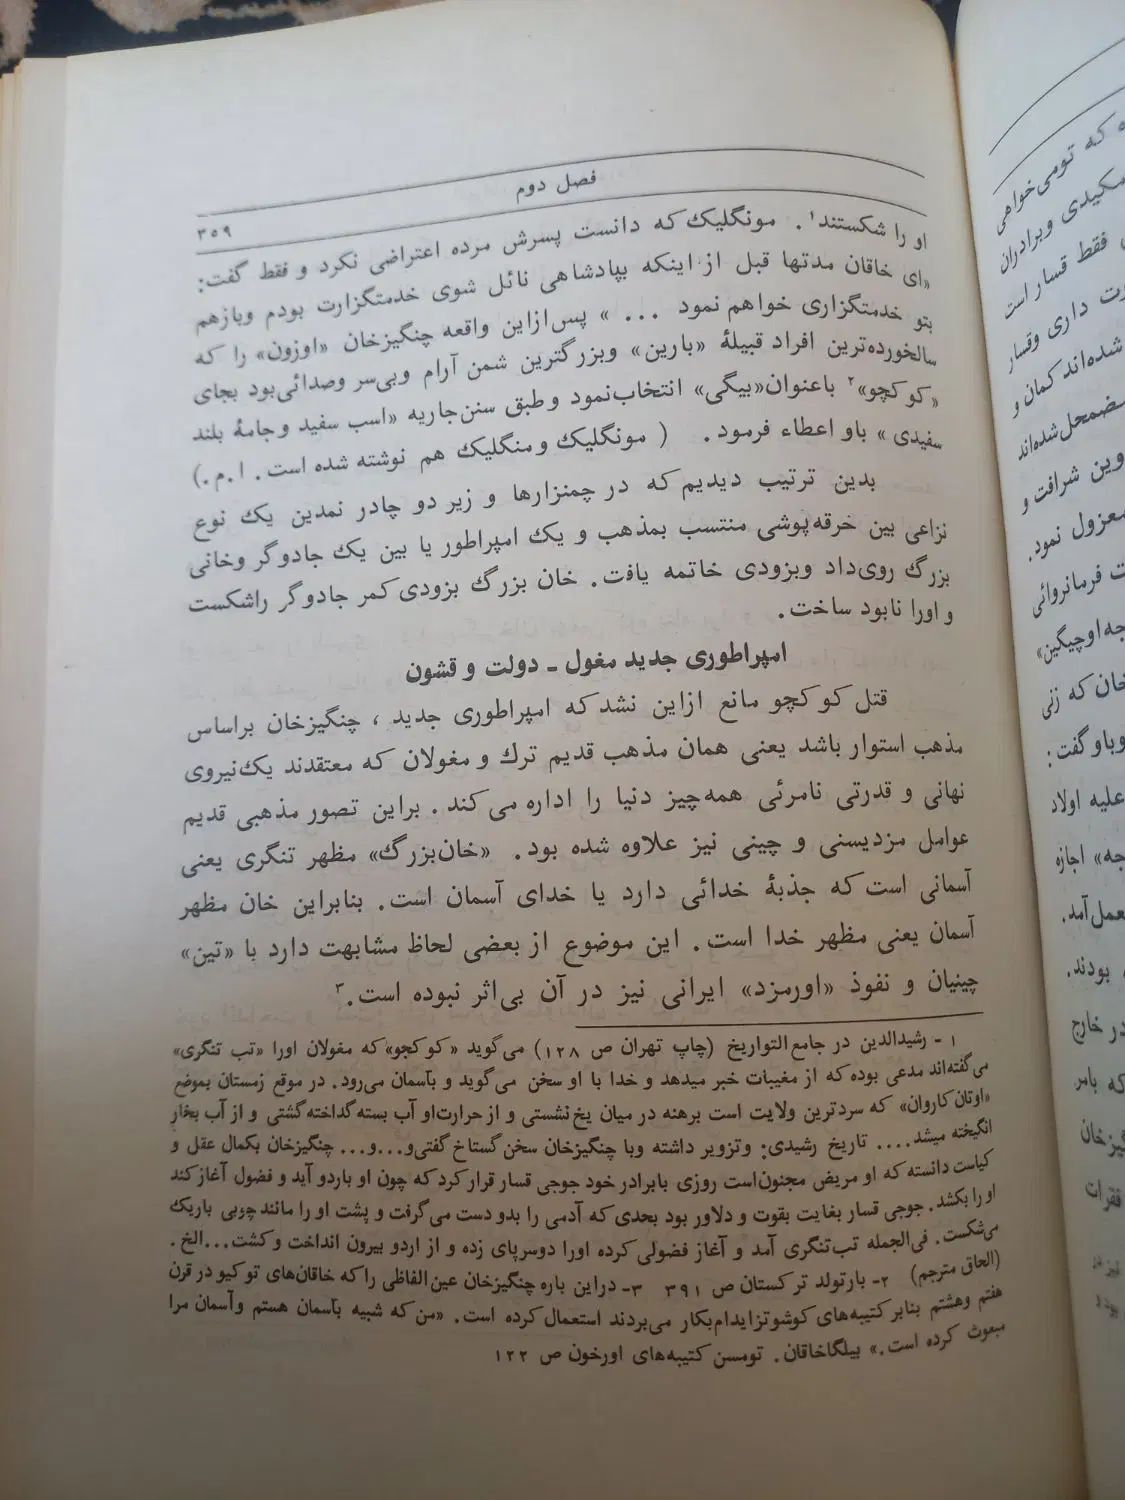 فصل دوم
۳۵۹
او را شکستند۱. مونگلیک که دانست پسرش مرده اعتراضی نکرد و فقط گفت:
«ای خاقان مدتها قبل از اینکه بپادشاهی نائل شوی خدمتگزارت بودم وبازهم
بتو خدمتگزاری خواهم نمود ... » پس‌ازاین واقعه چنگیزخان «اوزون» را که
سالخورده‌ترین افراد قبیلهٔ «بارین» وبزرگترین شمن آرام وبی‌سر وصدائی‌بود بجای
«کوکچو»۲ باعنوان«بیگی» انتخاب‌نمود وطبق سنن‌جاریه «اسب سفید وجامهٔ بلند
سفیدی» باو اعطاء فرمود. ( مونگلیک ومنگلیک هم نوشته شده است. ا.م.)
بدین ترتیب دیدیم که در چمنزارها و زیر دو چادر نمدین یک نوع
نزاعی بین خرقه‌پوشی منتسب بمذهب و یک امپراطور یا بین یک جادوگر وخانی
بزرگ روی‌داد وبزودی خاتمه یافت. خان بزرگ بزودی کمر جادوگر راشکست
و اورا نابود ساخت.
امپراطوری جدید مغول ـ دولت و قشون
قتل کوکچو مانع ازاین نشد که امپراطوری جدید ، چنگیزخان براساس
مذهب استوار باشد یعنی همان مذهب قدیم ترك و مغولان که معتقدند یک‌نیروی
نهانی و قدرتی نامرئی همه‌چیز دنیا را اداره می‌کند. براین تصور مذهبی قدیم
عوامل مزدیسنی و چینی نیز علاوه شده بود. «خان‌بزرگ» مظهر تنگری یعنی
آسمانی است که جذبهٔ خدائی دارد یا خدای آسمان است. بنابراین خان مظهر
آسمان یعنی مظهر خدا است. این موضوع از بعضی لحاظ مشابهت دارد با «تین»
چینیان و نفوذ «اورمزد» ایرانی نیز در آن بی‌اثر نبوده است.۳
۱ - رشیدالدین در جامع‌التواریخ (چاپ تهران ص ۱۲۸) می‌گوید «کوکجو»که مغولان اورا «تب تنگری»
می‌گفته‌اند مدعی بوده که از مغیبات خبر میدهد و خدا با او سخن می‌گوید و بآسمان می‌رود. در موقع زمستان بموضع
«اوتان‌کاروان» که سردترین ولایت است برهنه در میان یخ‌نشستی و از حرارت‌او آب بسته‌گداخته‌گشتی و از آب بخار
انگیخته میشد.... تاریخ رشیدی: وتزویر داشته وبا چنگیزخان سخن گستاخ گفتی‌و...و... چنگیزخان بکمال عقل و
کیاست دانسته که او مریض مجنون‌است روزی بابرادر خود جوجی قسار قرار کرد که چون او باردو آید و فضول آغاز کند
او را بکشد. جوجی قسار بغایت بقوت و دلاور بود بحدی که آدمی را بدو دست می‌گرفت و پشت او را مانند چوبی باریک
می‌شکست. فی‌الجمله تب‌تنگری آمد و آغاز فضولی کرده اورا دوسرپای زده و از اردو بیرون انداخت وکشت...الخ.
(الحاق مترجم) ۲- بارتولد ترکستان ص ۳۹۱ ۳- دراین باره چنگیزخان عین‌الفاظی را که خاقان‌های توکیو در قرن
هفتم وهشتم بنابر کتیبه‌های کوشوتزایدام‌بکار می‌بردند استعمال کرده است. «من‌که شبیه بآسمان هستم وآسمان مرا
مبعوث کرده است.» بیلگاخاقان. تومسن کتیبه‌های اورخون ص ۱۲۲
ه که تومی‌خواهی
مکیدی وبرادران
فقط قسار است
رت داری وقسار
شده‌اند کمان و
مضمحل‌شده‌اند
وین شرافت و
معزول نمود.
ت فرمانروائی
جه‌اوچیگین»
خان که زنی
وباو گفت:
علیه اولاد
جه» اجازه
عمل‌آمد.
بودند.
در خارج
که بامر
گیزخان
فقرات
نیز در